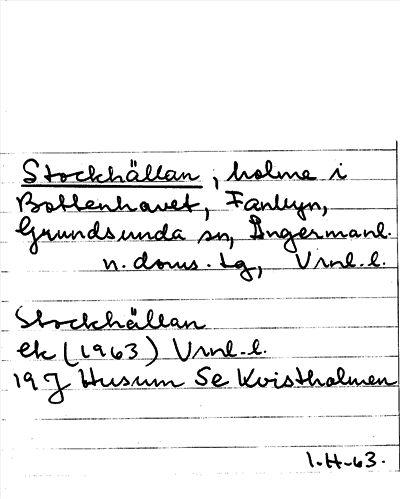 Stockhällan, holme i
Bottenhavet, Fanbyn,
Grundsunda sn, Ångermanl.
n. doms. tg, Vrnl. l.
Stockhällan
ek (1963) Vrnl. l.
19 J Husum Se Kvistholmen
1-H-63.